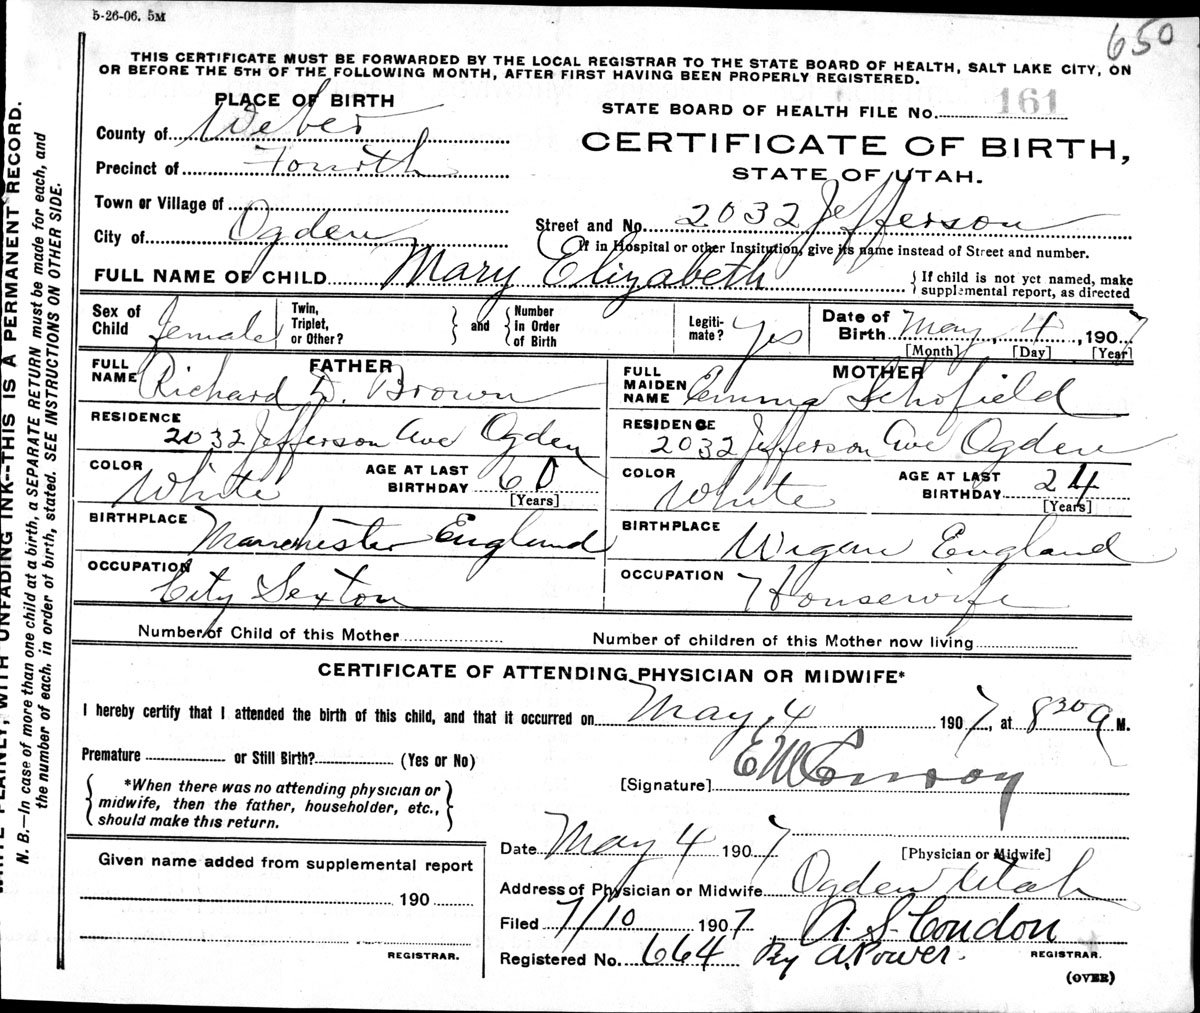 5-26-06. 5M
650
THIS CERTIFICATE MUST BE FORWARDED BY THE LOCAL REGISTRAR TO THE STATE BOARD OF HEALTH, SALT LAKE CITY, ON
OR BEFORE THE 5TH OF THE FOLLOWING MONTH, AFTER FIRST HAVING BEEN PROPERLY REGISTERED.
PLACE OF BIRTH
STATE BOARD OF HEALTH FILE No. 161
County of Weber
CERTIFICATE OF BIRTH,
Precinct of Fourth
STATE OF UTAH.
Town or Village of
Street and No. 2032 Jefferson
City of Ogden
If in Hospital or other Institution, give its name instead of Street and number.
FULL NAME OF CHILD Mary Elizabeth
{If child is not yet named, make
supplemental report, as directed
Sex of Child Female
Twin, Triplet, or Other?
and
Number in Order of Birth
Legiti-mate? Yes
Date of Birth May 4, 1907
[Month] [Day] [Year]
FATHER
FULL NAME Richard D. Brown
RESIDENCE 2032 Jefferson Ave Ogden
COLOR White
AGE AT LAST BIRTHDAY 60
[Years]
BIRTHPLACE Manchester England
OCCUPATION City Sexton
MOTHER
FULL MAIDEN NAME Emma Schofield
RESIDENCE 2032 Jefferson Ave Ogden
COLOR White
AGE AT LAST BIRTHDAY 24
[Years]
BIRTHPLACE Wigan England
OCCUPATION Housewife
Number of Child of this Mother
Number of children of this Mother now living
CERTIFICATE OF ATTENDING PHYSICIAN OR MIDWIFE*
I hereby certify that I attended the birth of this child, and that it occurred on May 4 1907, at 8 30 a M.
Premature or Still Birth? (Yes or No)
[Signature] E M Conroy
{*When there was no attending physician or
midwife, then the father, householder, etc.,
should make this return.}
Date May 4 1907
[Physician or Midwife]
Given name added from supplemental report
190
REGISTRAR.
Address of Physician or Midwife Ogden Utah
Filed 7/10 1907 A. S. Condon
REGISTRAR.
Registered No. 664 Per A. Power.
(OVER)
WRITE PLAINLY, WITH UNFADING INK--THIS IS A PERMANENT RECORD.
N. B.—In case of more than one child at a birth, a SEPARATE RETURN must be made for each, and
the number of each, in order of birth, stated. SEE INSTRUCTIONS ON OTHER SIDE.